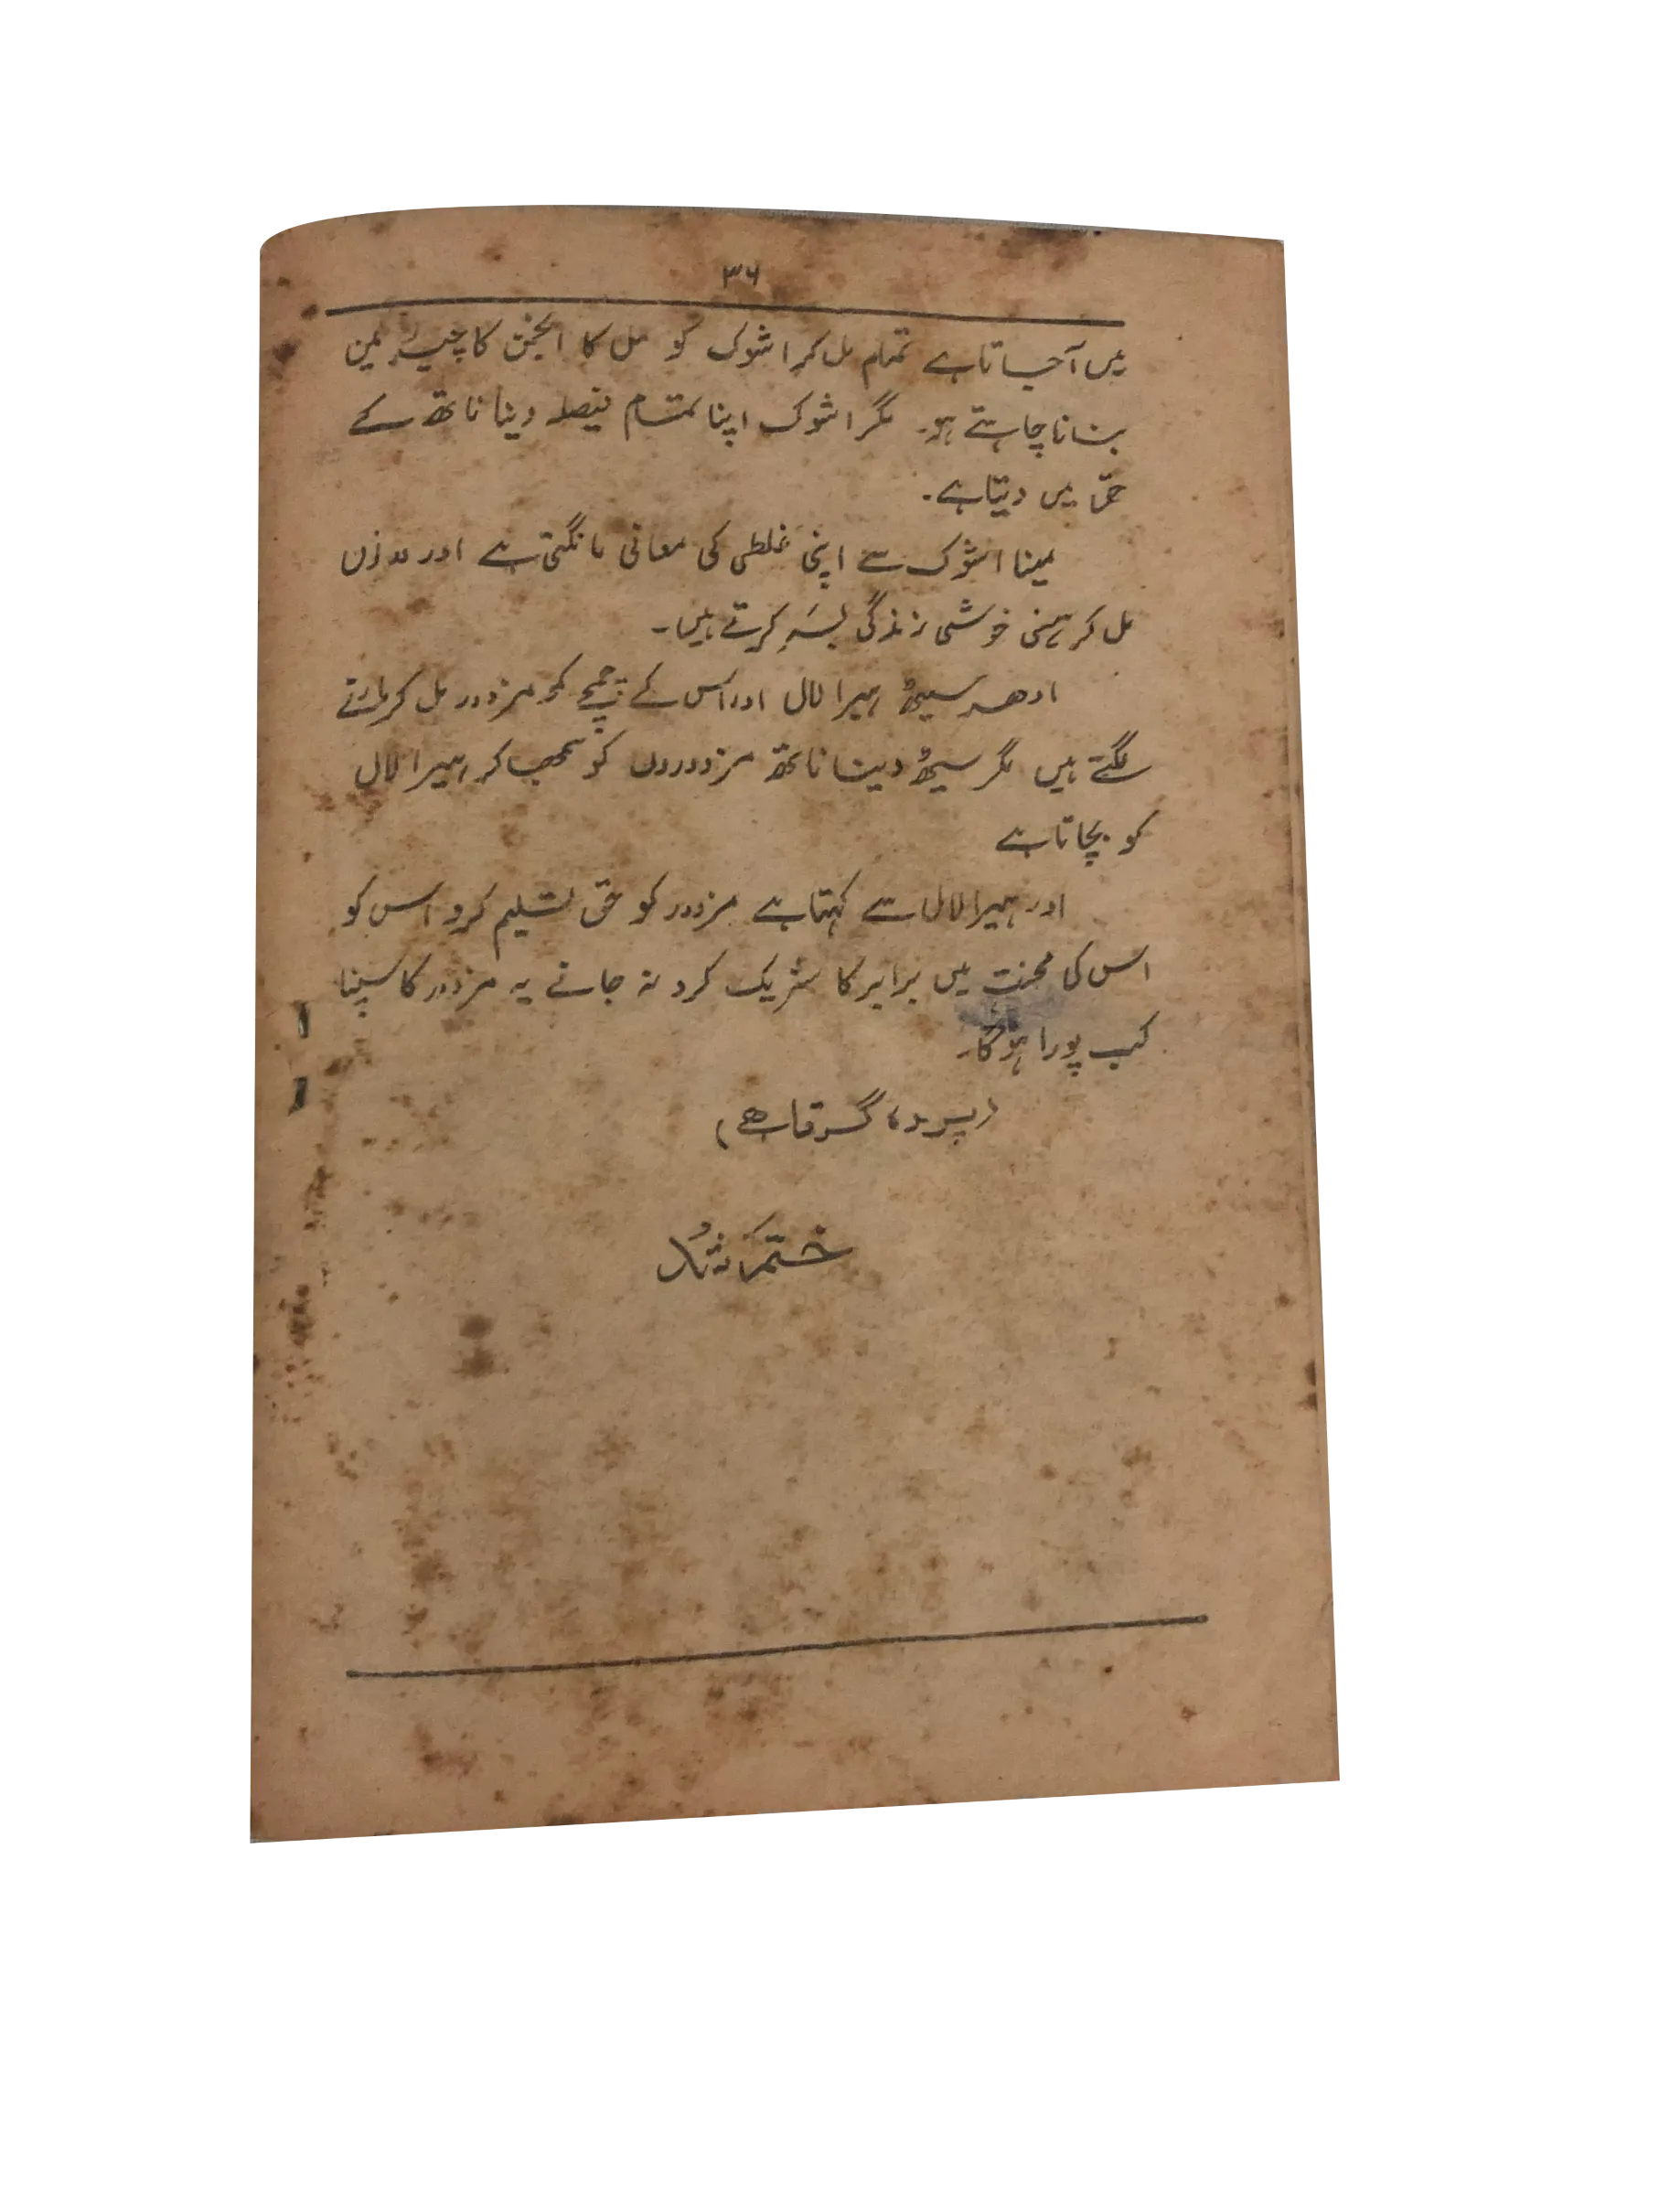 ۳۶
میں آجاتا ہے تمام مل کر اشوک کو مل کا انجمن کا چیئرمین
بنانا چاہتے ہو۔ مگر اشوک اپنا تمام فیصلہ دینا ناتھ کے
حق میں دیتا ہے۔
مینا اشوک سے اپنی غلطی کی معافی مانگتی ہے اور دونوں
مل کر ہنسی خوشی زندگی بسر کرتے ہیں۔
ادھر سیٹھ ہیرا لال اور اس کے چمچے کو مزدور مل کر مارنے
لگتے ہیں مگر سیٹھ دینا ناتھ مزدوروں کو سمجھا کر ہیرا لال
کو بچاتا ہے
اور ہیرا لال سے کہتا ہے مزدور کو حق تسلیم کرو اس کو
اس کی محنت میں برابر کا شریک کرو نہ جانے یہ مزدور کا سپنا
کب پورا ہوگا۔
(پردہ گرتا ہے)
ختم شد